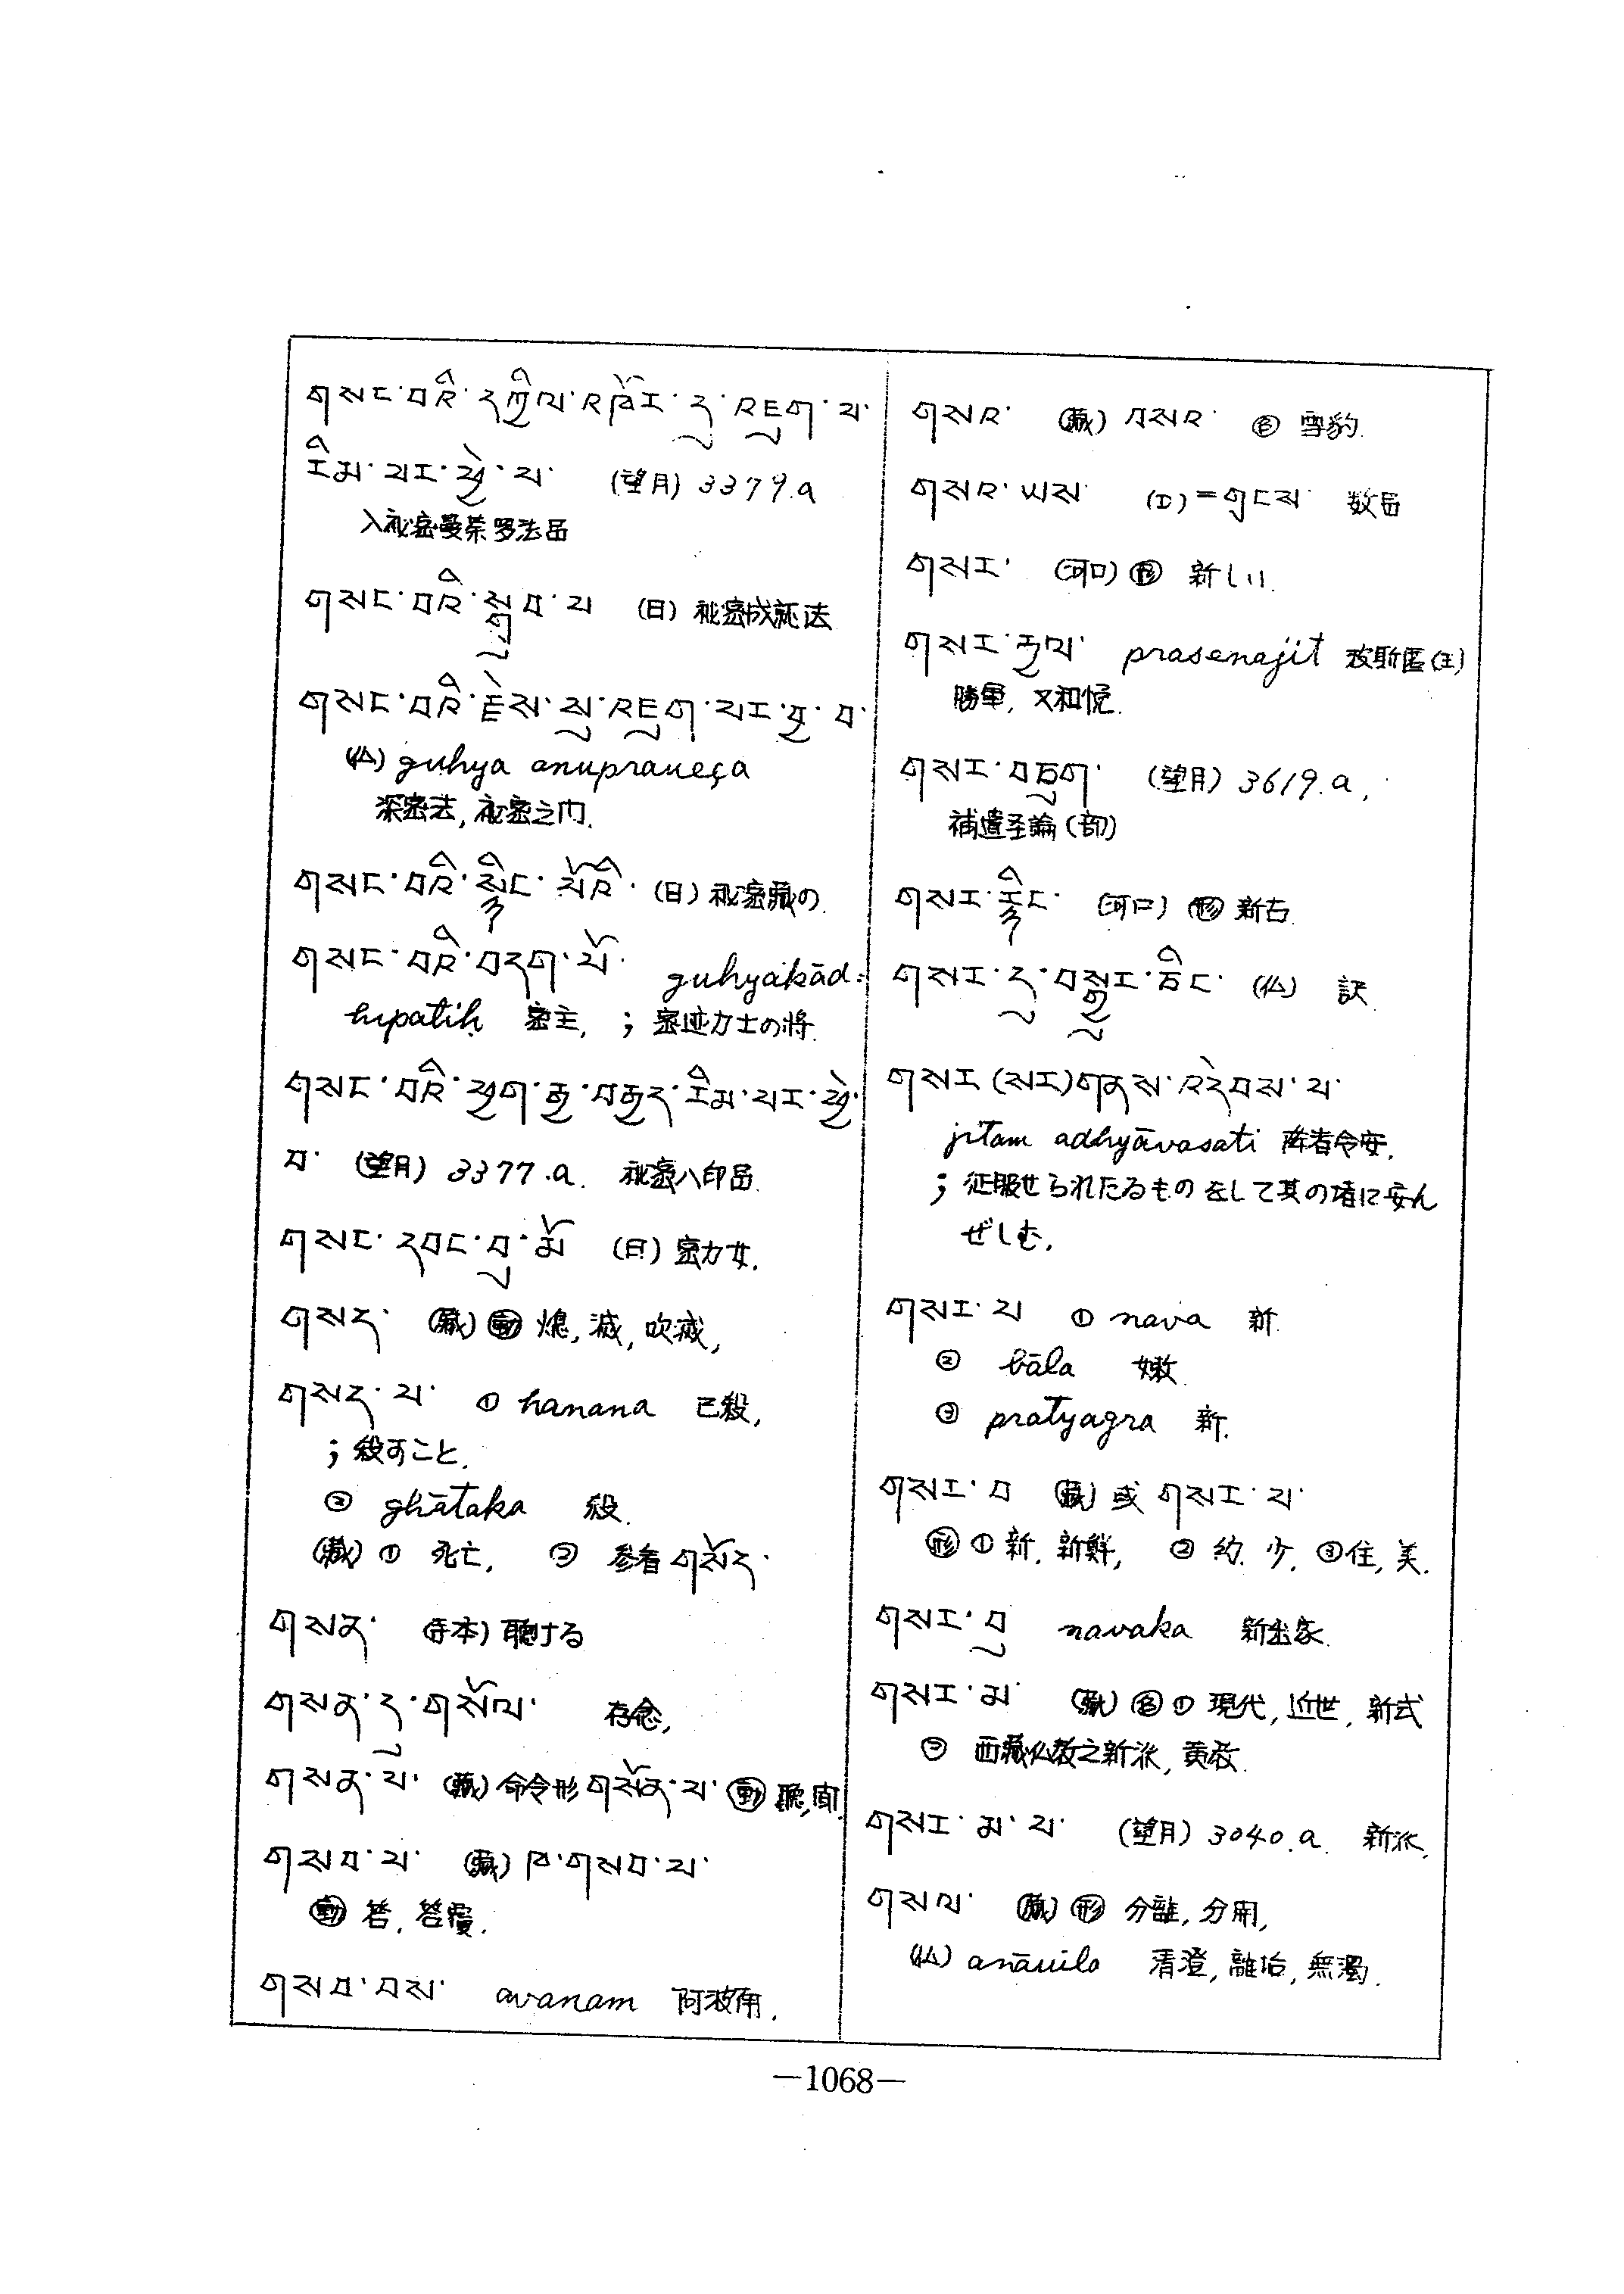 གསང་བའི་དཀྱིལ་འཁོར་དུ་འཇུག་པ་
རིམ་པར་ཕྱེ་བ་ (望月) 3379.a
入秘密曼荼罗法品
གསང་བའི་སྒྲུབ་པ (日) 秘密成就法
གསང་བའི་རྗེས་སུ་འཇུག་པར་བྱ་བ་
(仏) guhya anupraveça
深密法, 秘密之门.
གསང་བའི་སྙིང་པོའི་ (日) 秘密蔵の.
གསང་བའི་བདག་པོ་ guhyakād=
hipatiḥ 密主, ; 密迹力士の将.
གསང་བའི་ཕྱག་རྒྱ་བརྒྱད་རིམ་པར་ཕྱེ་
བ་ (望月) 3377.a. 秘密八印品.
གསང་དབང་བུ་མོ (日) 密力女.
གསད་ (藏) 動 熄, 滅, 吹滅,
གསད་པ་ ① hanana 已殺,
; 殺すこと.
② ghātaka 殺.
(藏) ① 死亡, ② 参看 གསོད་
གསན་ (寺本) 聴ける
གསན་དུ་གསོལ་ 存念,
གསན་པ་ (藏) 命令形 གསོན་པ་ 動 聽, 聞.
གསབ་པ་ (藏) ཁ་གསབ་པ་
動 答, 答覆.
གསབ་བས་ avanam 阿波南.
གསའ་ (藏) བསའ་ 名 雪豹.
གསའ་ཡས་ (D) = གྲངས་ 数品
གསར་ (河口) 形 新しい.
གསར་རྒྱལ་ prasenajit 波斯匿(王)
勝軍, 又和悦.
གསར་བཅུག་ (望月) 3619.a,
補遺圣論(部)
གསར་རྙིང་ (河口) 形 新古.
གསར་དུ་བསྒྱུར་ཅིང་ (仏) 訳.
གསར (སར) གནས་འདེབས་པ་
jitam adhyāvasati 降者令安.
; 征服せられたるものをして其の堵に安ん
ぜしむ.
གསར་པ ① nava 新.
② bāla 嫩.
③ pratyagra 新.
གསར་བ (藏) 或 གསར་པ་
形 ① 新, 新鮮, ② 约, 少, ③ 佳, 美.
གསར་བུ navaka 新出家.
གསར་མ་ (藏) 名 ① 現代, 近世, 新式
② 西藏仏教之新派, 黄教.
གསར་མ་པ་ (望月) 3040.a. 新派.
གསལ་ (藏) 形 分離, 分開,
(仏) anāvila 清澄, 離垢, 無濁.
—1068—